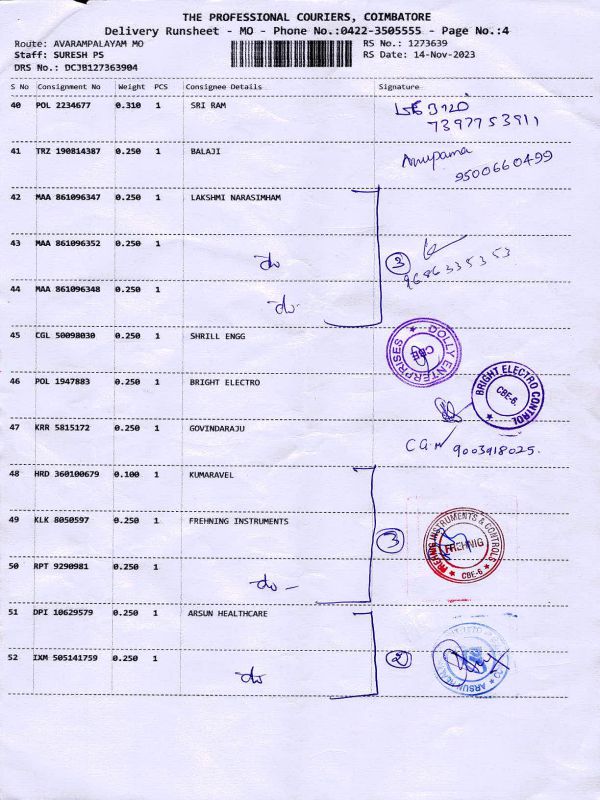 THE PROFESSIONAL COURIERS, COIMBATORE
Delivery Runsheet - MO - Phone No.:0422-3505555 - Page No.:4
Route: AVARAMPALAYAM MO RS No.: 1273639
Staff: SURESH PS RS Date: 14-Nov-2023
DRS No.: DCJB127363904
S No Consignment No Weight PCS Consignee Details Signature
40 POL 2234677 0.310 1 SRI RAM
7397753911
41 TRZ 190814387 0.250 1 BALAJI Anupama
9500660499
42 MAA 861096347 0.250 1 LAKSHMI NARASIMHAM
43 MAA 861096352 0.250 1 do 3
9686335353
44 MAA 861096348 0.250 1 do
45 CGL 50098030 0.250 1 SHRILL ENGG DOLLY ENTERPRISES CBE
46 POL 1947883 0.250 1 BRIGHT ELECTRO BRIGHT ELECTRO CONTROL CBE-6.
47 KRR 5815172 0.250 1 GOVINDARAJU 9003918025.
48 HRD 360100679 0.100 1 KUMARAVEL
49 KLK 8050597 0.250 1 FREHNING INSTRUMENTS 3 FREHNIG INSTRUMENTS & CONTROLS FREHNIG CBE-6
50 RPT 9290981 0.250 1 do
51 DPI 10629579 0.250 1 ARSUN HEALTHCARE
52 IXM 505141759 0.250 1 do 2